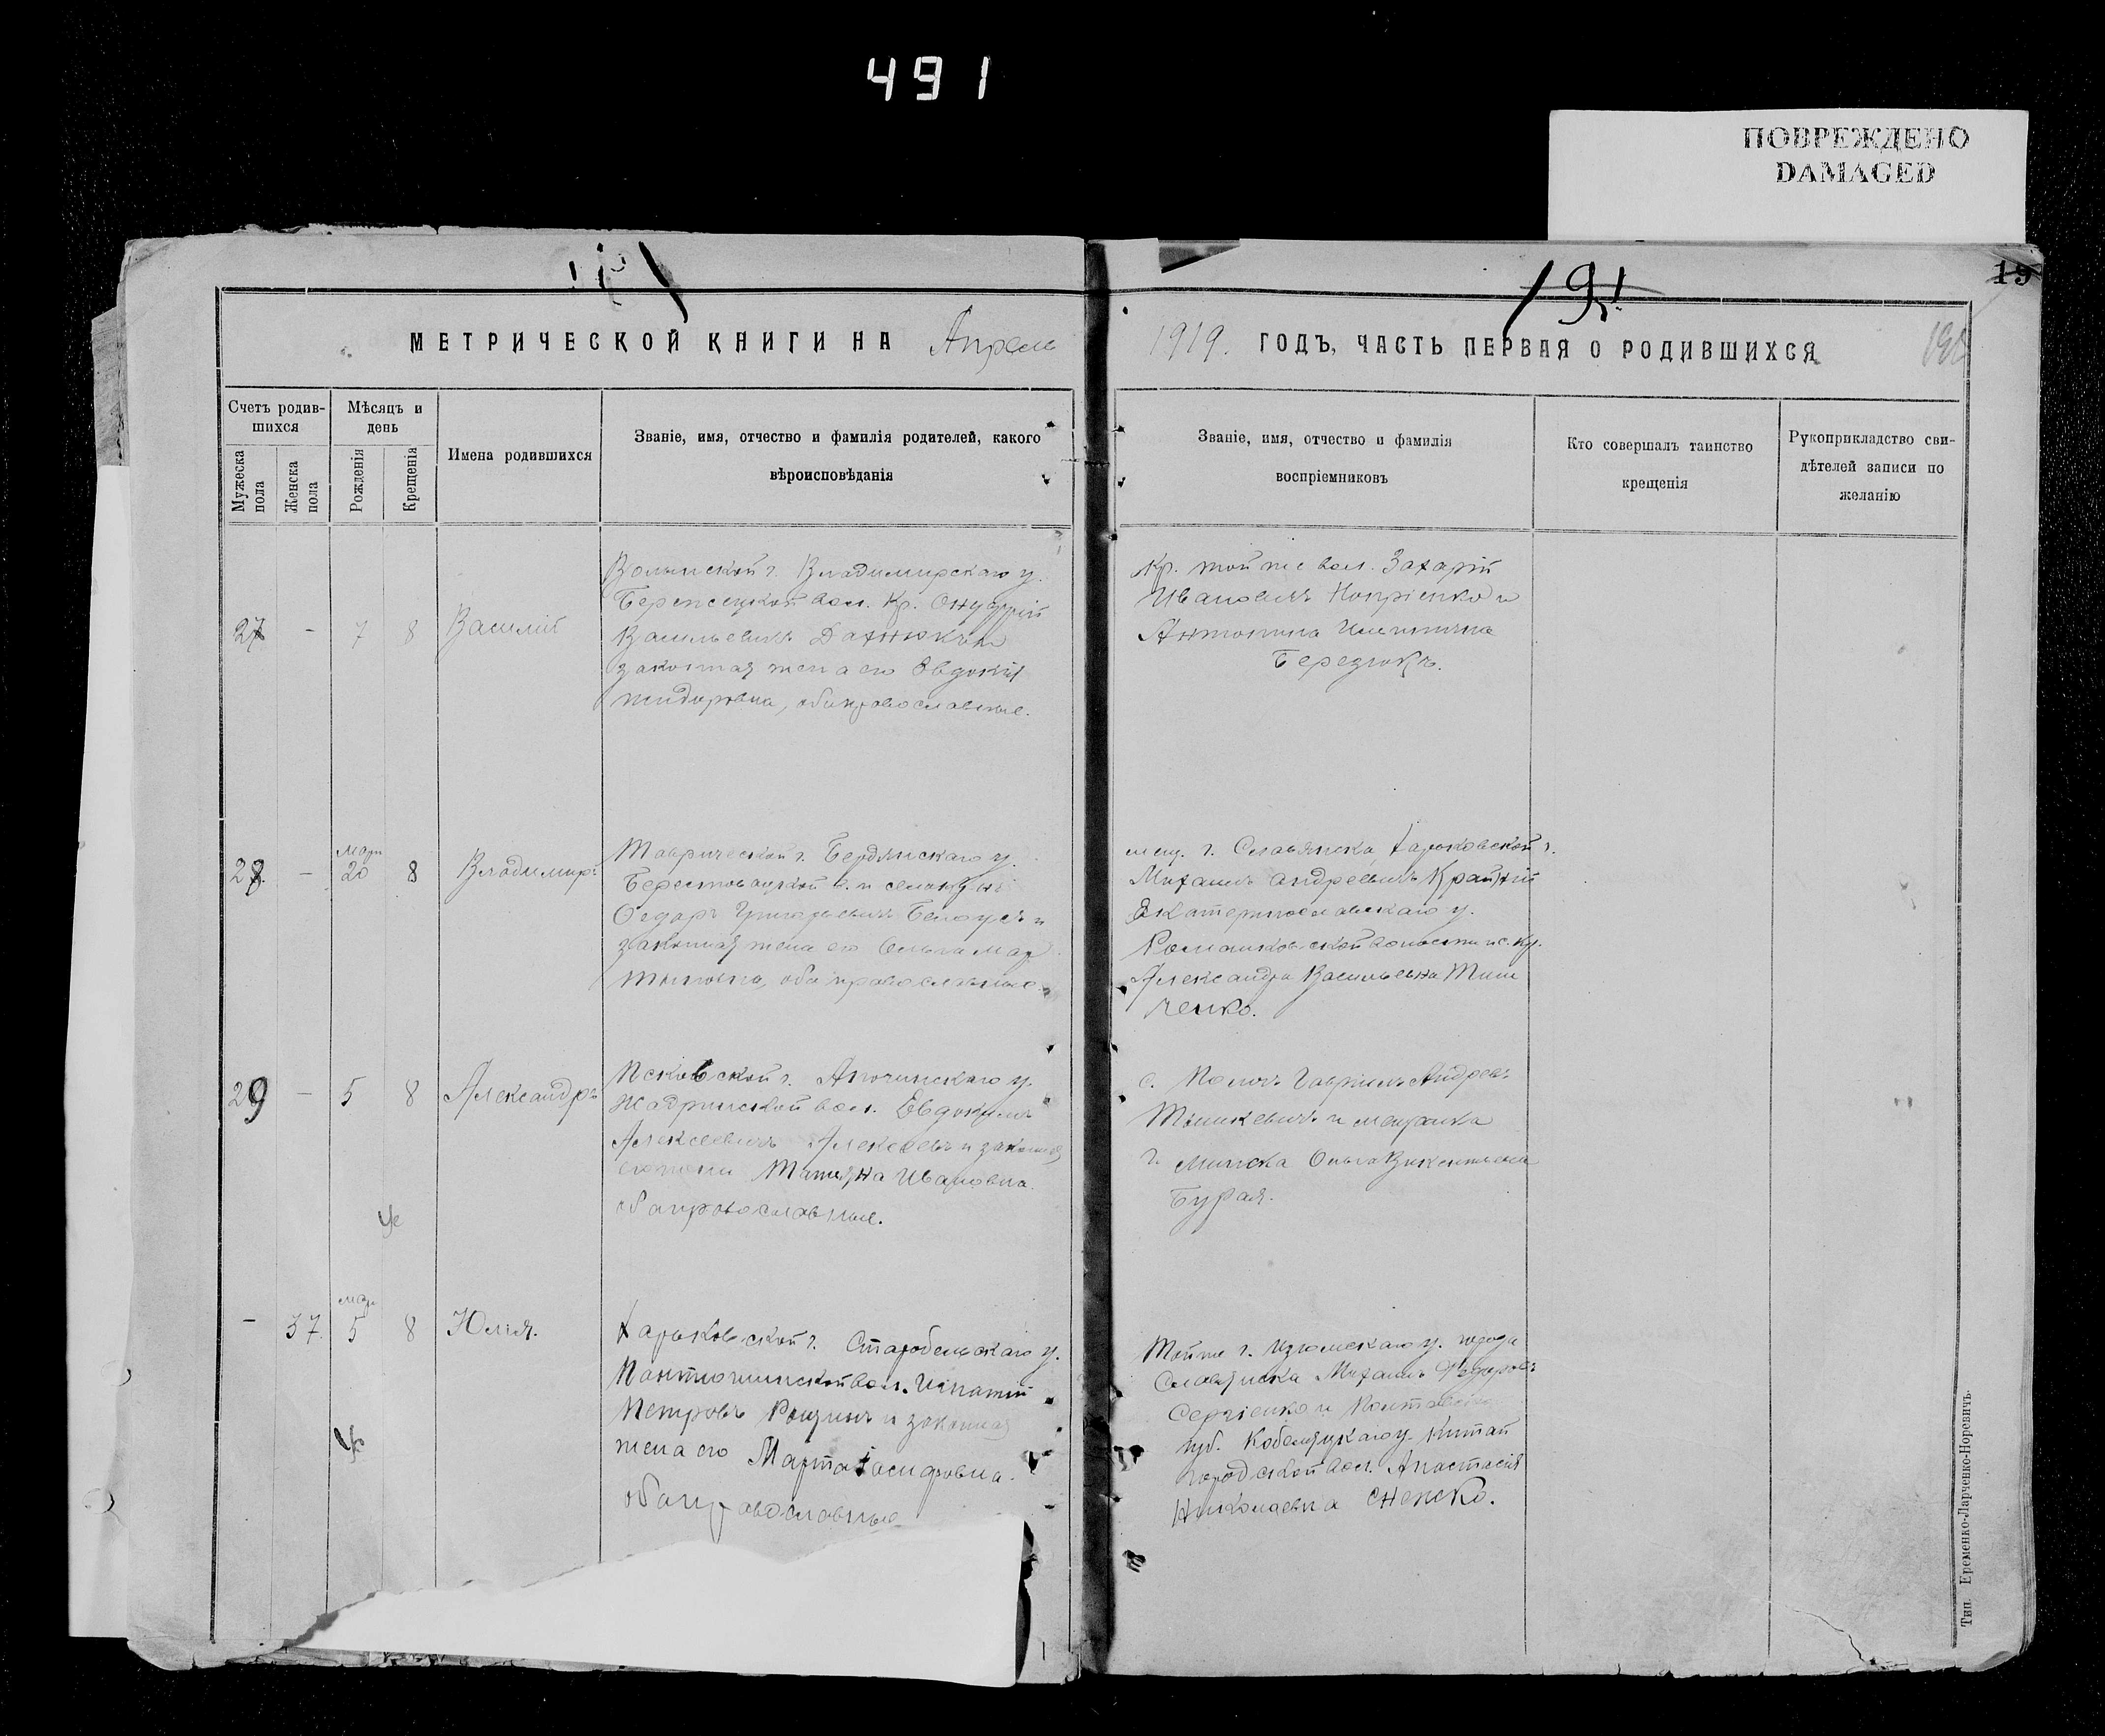 491
ПОВРЕЖДЕНО
DAMAGED
191
19
МЕТРИЧЕСКОЙ КНИГИ НА Апрель
1919. ГОДЪ, ЧАСТЬ ПЕРВАЯ О РОДИВШИХСЯ
Счетъ родив-
шихся
Мужеска
пола
Женска
пола
Мѣсяцъ и
день
Рожденія
Крещенія
Имена родившихся
Званіе, имя, отчество и фамилія родителей, какого
вѣроисповѣданія
Званіе, имя, отчество и фамилія
воспріемниковъ
Кто совершалъ таинство
крещенія
Рукоприкладство сви-
дѣтелей записи по
желанію
27 - 7 8 Василій
Волынской г. Владимирскаго у.
вол. Кр. Онуфрій
Васильевичъ
законная жена его Евдокія
обa православные.
Кр. той же вол. Захарій
Ивановичъ и
Антонина
Березюкъ.
28 - Мар 20 8 Владимиръ
Таврической г. Бердянскаго у.
Берестовацкой в. и села
Ѳедоръ Григорьевичъ Белоусъ и
законная жена его Ольга Мар
тыновна, оба православные.
мещ. г. Славянска, Харьковской г.
Михаилъ Андреевичъ Крайній
Екатеринославскаго у.
Романковской волости и с. кр.
Александра Васильевна Тим
ченко.
29 - 5 8 Александръ
Псковской г. Апочинскаго у.
Жадринской вол. Евдокимъ
Алексеевичъ Алексеевъ и законная
его жена Татьяна Ивановна
оба православные.
Гавріилъ Андреевъ
и мещанка
г. Минска Ольга Викентьевна
Бурая.
- 37. мар 5 8 Юлія.
Харьковской г. Старобельскаго у.
вол. Игнатій
Петровъ Рощинъ и законная
жена его Марта Іосифовна.
оба православные
Той же г. Изюмскаго у. города
Славянска Михаилъ Федоровъ
Сергіенко и Полтавской
губ. Кобеляцкаго у. Китай
городской вол. Анастасія
Николаевна
Тип. Еременко-Ларченко-Норевичъ.